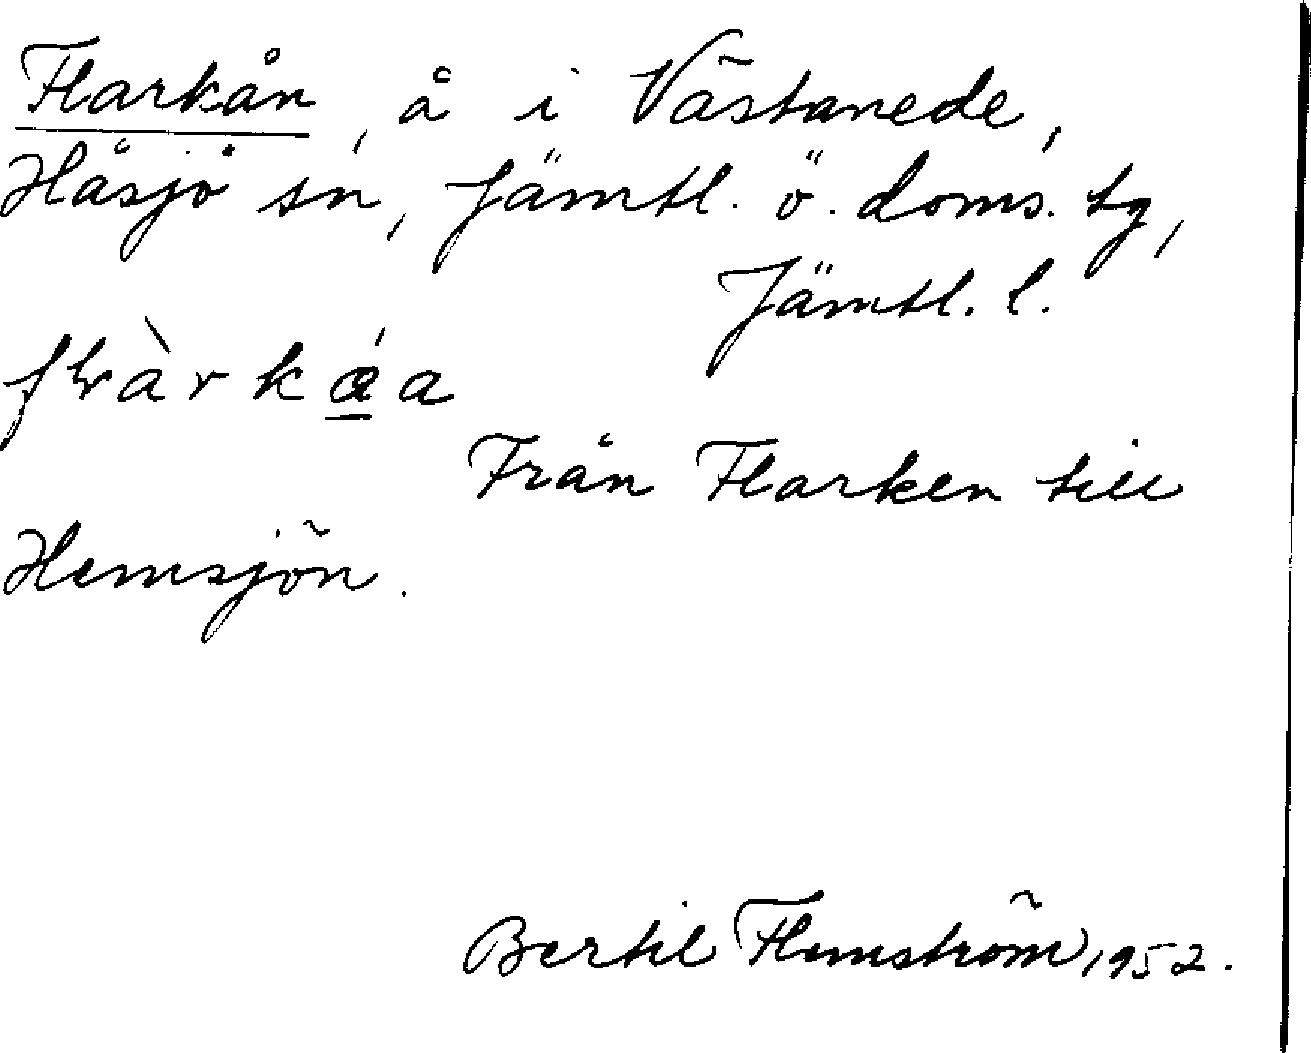 Flarkån, å i Västanede,
Håsjö sn, Jämtl. ö. doms. tg,
Jämtl. l.
Från Flarken till
Hemsjön.
Bertil Flemström, 1952.